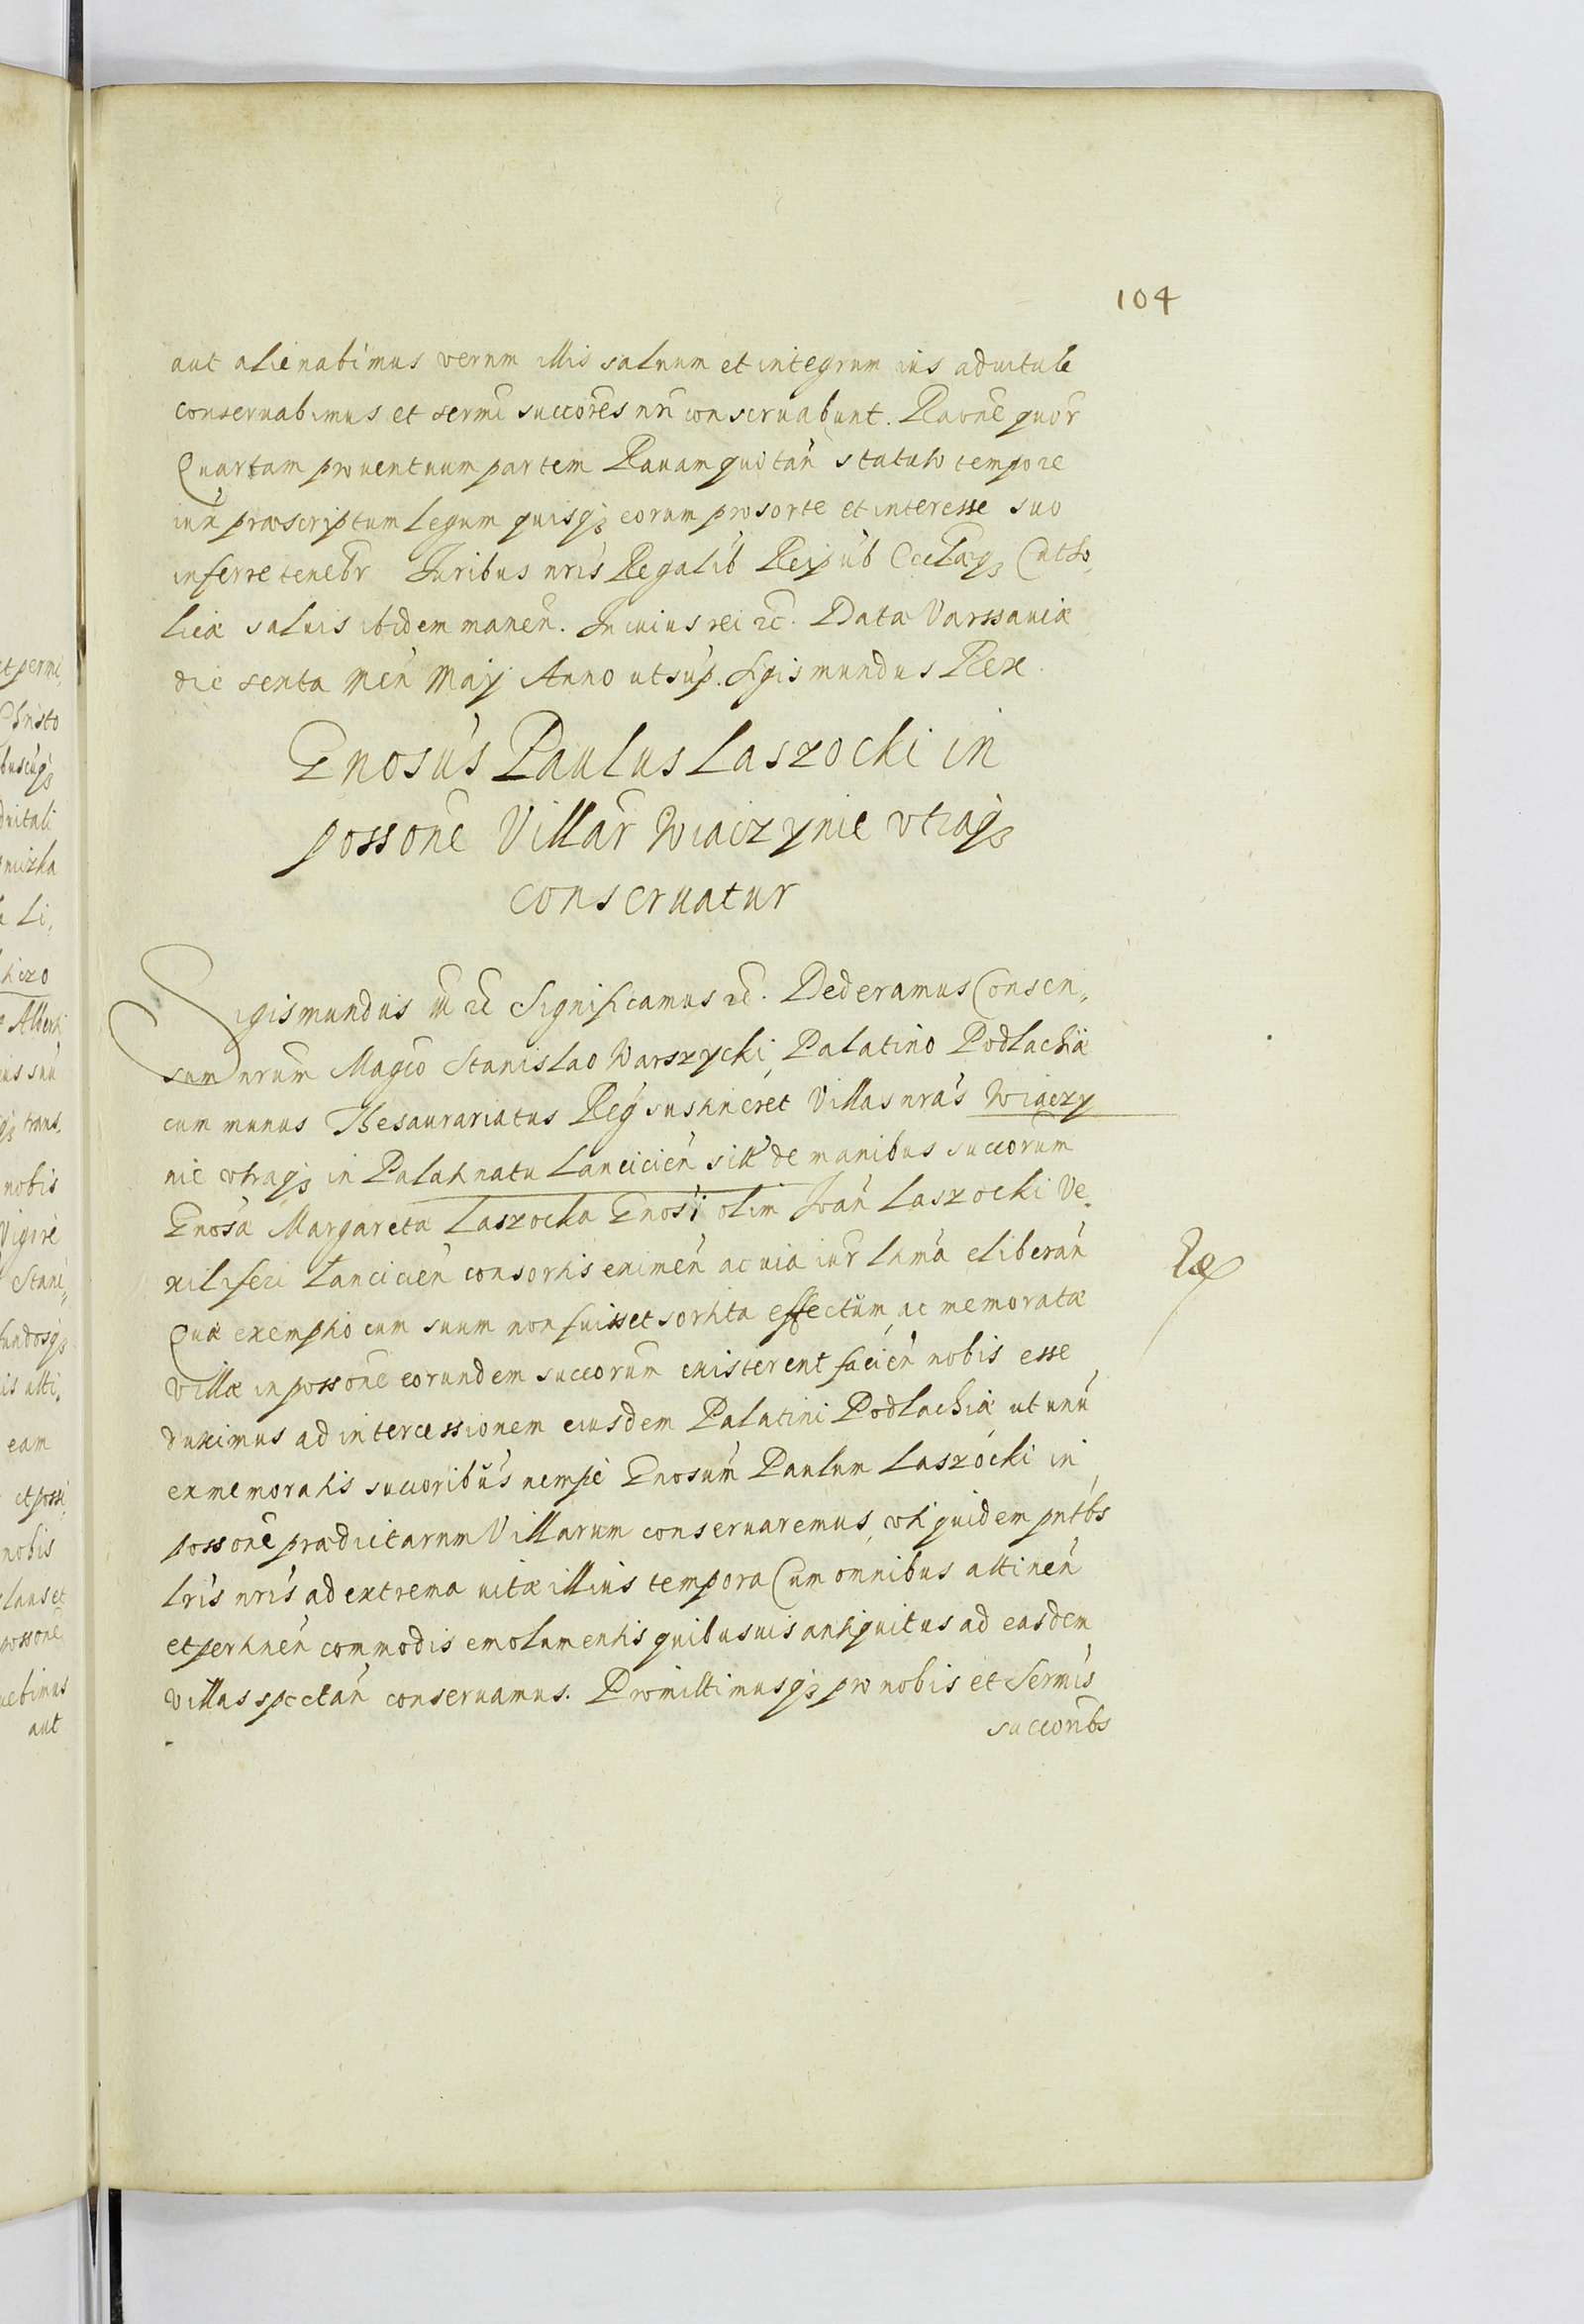 104
aut alienabimus verum illis saluum et integrum ius aduitale
conseruabimus et sermi succores nri conseruabunt. Raone quor
Quartam prouentuum partem Rauam quotan statuto tempore
iux præscriptum legum quisqз eorum pro sorte et interesse suo
inferre tenebr Juribus nris Regalib Reipub Ecclæqз Catho,
licæ saluis ibidem manen. In cuius rei ꝛc. Data Varssauiæ
die sexta Men Maij Anno ut sup. Sigismundus Rex.
Gnosus Paulus Laszocki in
possone Villar Wiaczynie vtraqз
conseruatur
Sigismundus III ꝛc Significamus ꝛc. Dederamus Consen,
sum nrum Magco Stanislao Warszycki, Palatino Podlachiæ
cum munus Thesaurariatus Regij sustineret Villas nras Wiaczy
nie vtraqз in Palatinatu Lancicien sitt de manibus succorum
Gnosa Margareta Laszocka Gnosi olim Joan Laszocki Ve,
xiliferi Lancicien consortis eximen ac uia iur ltma eliberan
Quæ exemptio cum suum non fuisset sortita effectum, ac memoratæ
Villæ in possone eorundem succorum existerent facien nobis esse
duximus ad intercessionem eiusdem Palatini Podlachiæ ut unu
ex memoratis succoribus nempe Gnosum Paulum Laszocki in
possone prædictarum Villarum conseruaremus, vti quidem pntbs
lris nris ad extrema uitæ illius tempora Cum omnibus attinen
et pertinen commodis emolumentis quibusuis antiquitus ad easdem
Villas spectan conseruamus. Promittimusqз pro nobis et Sermis
succoribs
et permi,
Christo
buscuqз
duitali
Li,
us suu
qз trans,
nobis
Vigore
Stani,
fundosqз
is atti,
eam
et possi,
nobis
possone
uebimus
aut